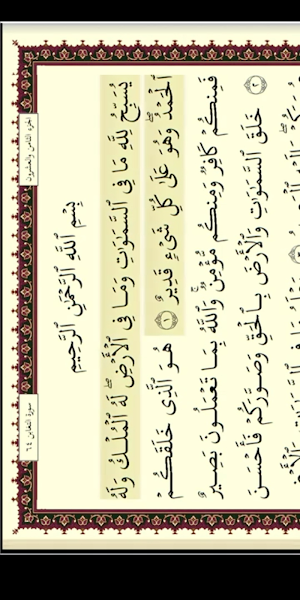 الجزء الثامن والعشرون
سورة التغابن ٦٤
بِسْمِ ٱللَّهِ ٱلرَّحْمَٰنِ ٱلرَّحِيمِ
يُسَبِّحُ لِلَّهِ مَا فِي ٱلسَّمَٰوَٰتِ وَمَا فِي ٱلْأَرْضِۖ لَهُ ٱلْمُلْكُ وَلَهُ
ٱلْحَمْدُۖ وَهُوَ عَلَىٰ كُلِّ شَيْءٍ قَدِيرٌ ١ هُوَ ٱلَّذِي خَلَقَكُمْ
فَمِنكُمْ كَافِرٌ وَمِنكُم مُّؤْمِنٌۚ وَٱللَّهُ بِمَا تَعْمَلُونَ بَصِيرٌ
٢ خَلَقَ ٱلسَّمَٰوَٰتِ وَٱلْأَرْضَ بِٱلْحَقِّ وَصَوَّرَكُمْ فَأَحْسَنَ